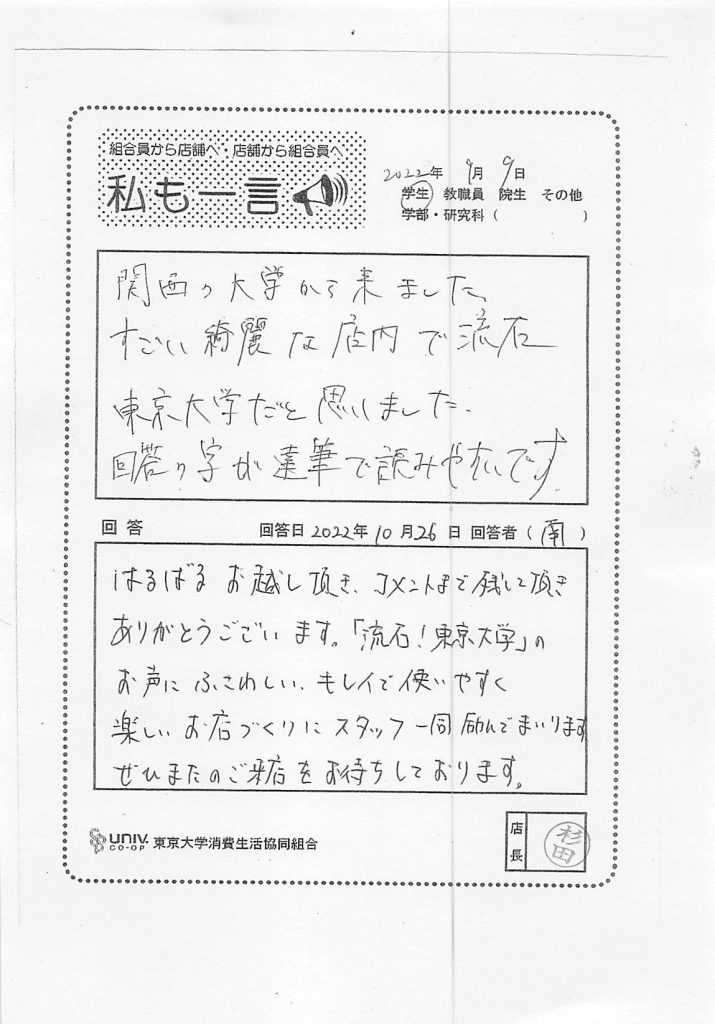 組合員から店舗へ・店舗から組合員へ
私も一言
2022年 9月 9日
学生 教職員 院生 その他
学部・研究科( )
関西の大学から来ました。
すごい綺麗な店内で流石
東京大学だと思いました。
回答の字が達筆で読みやすいです
回答 回答日2022年10月26日 回答者(南)
はるばるお越し頂き、コメントまで残して頂き
ありがとうございます。「流石!東京大学」の
お声にふさわしい、キレイで使いやすく
楽しいお店づくりにスタッフ一同励んでまいります
ぜひまたのご来店をお待ちしております。
UNIV. CO-OP 東京大学消費生活協同組合
店長 杉田